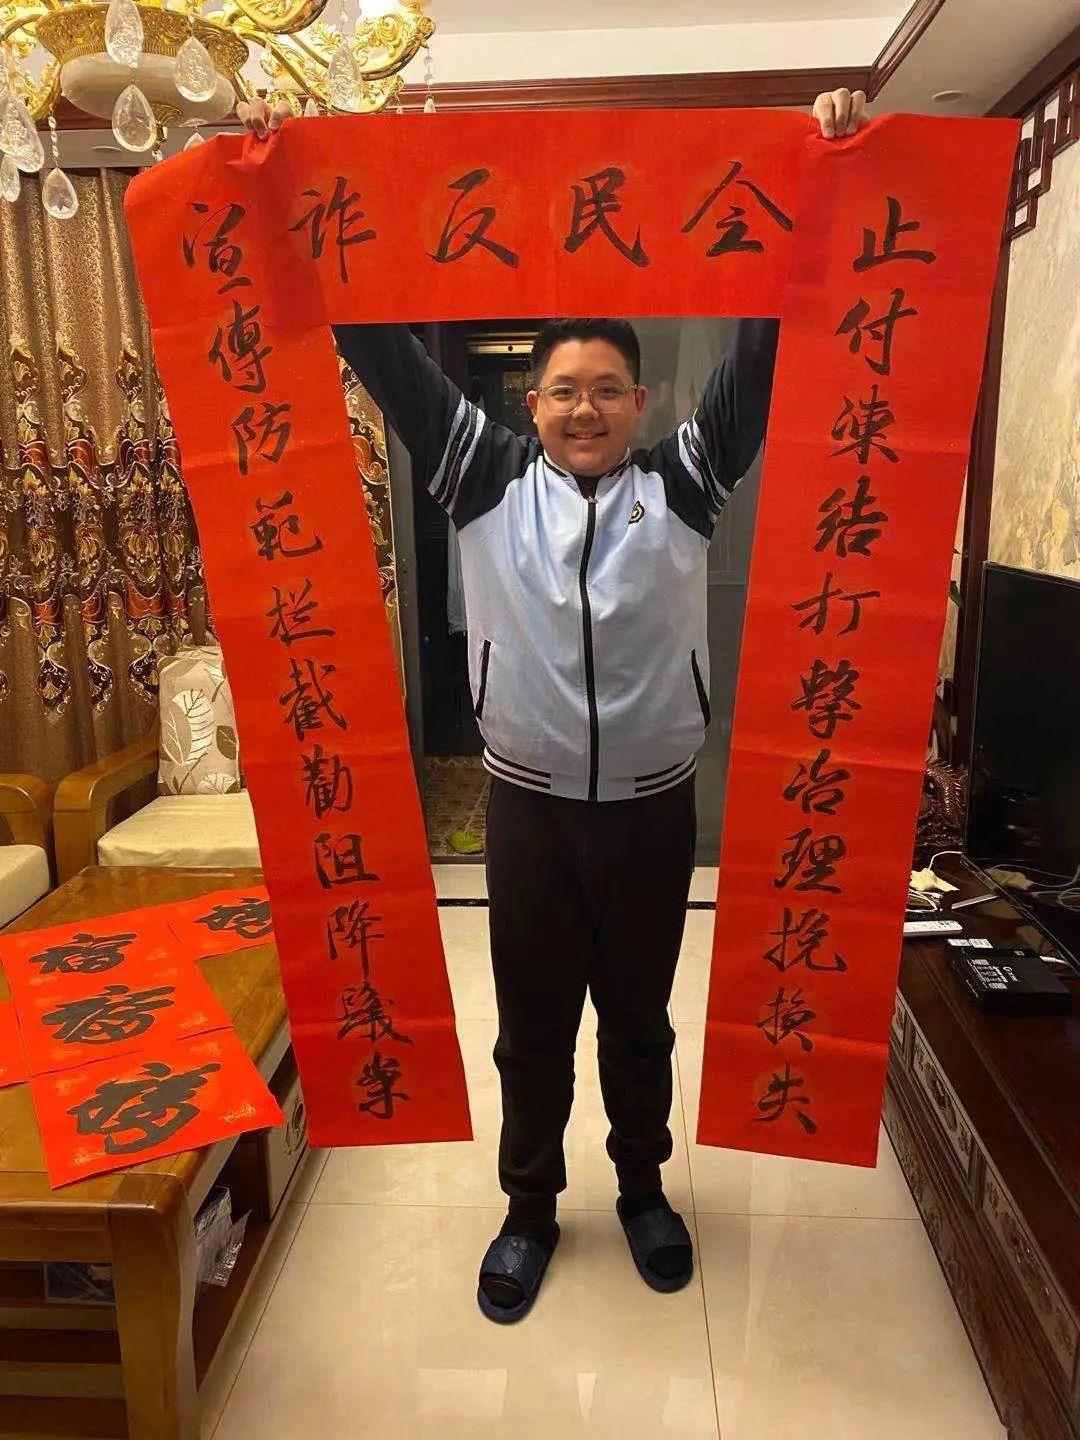 全民反诈
止付凍結打擊治理挽損失
宣傳防範拦截勸阻降發案
福
福
福
福